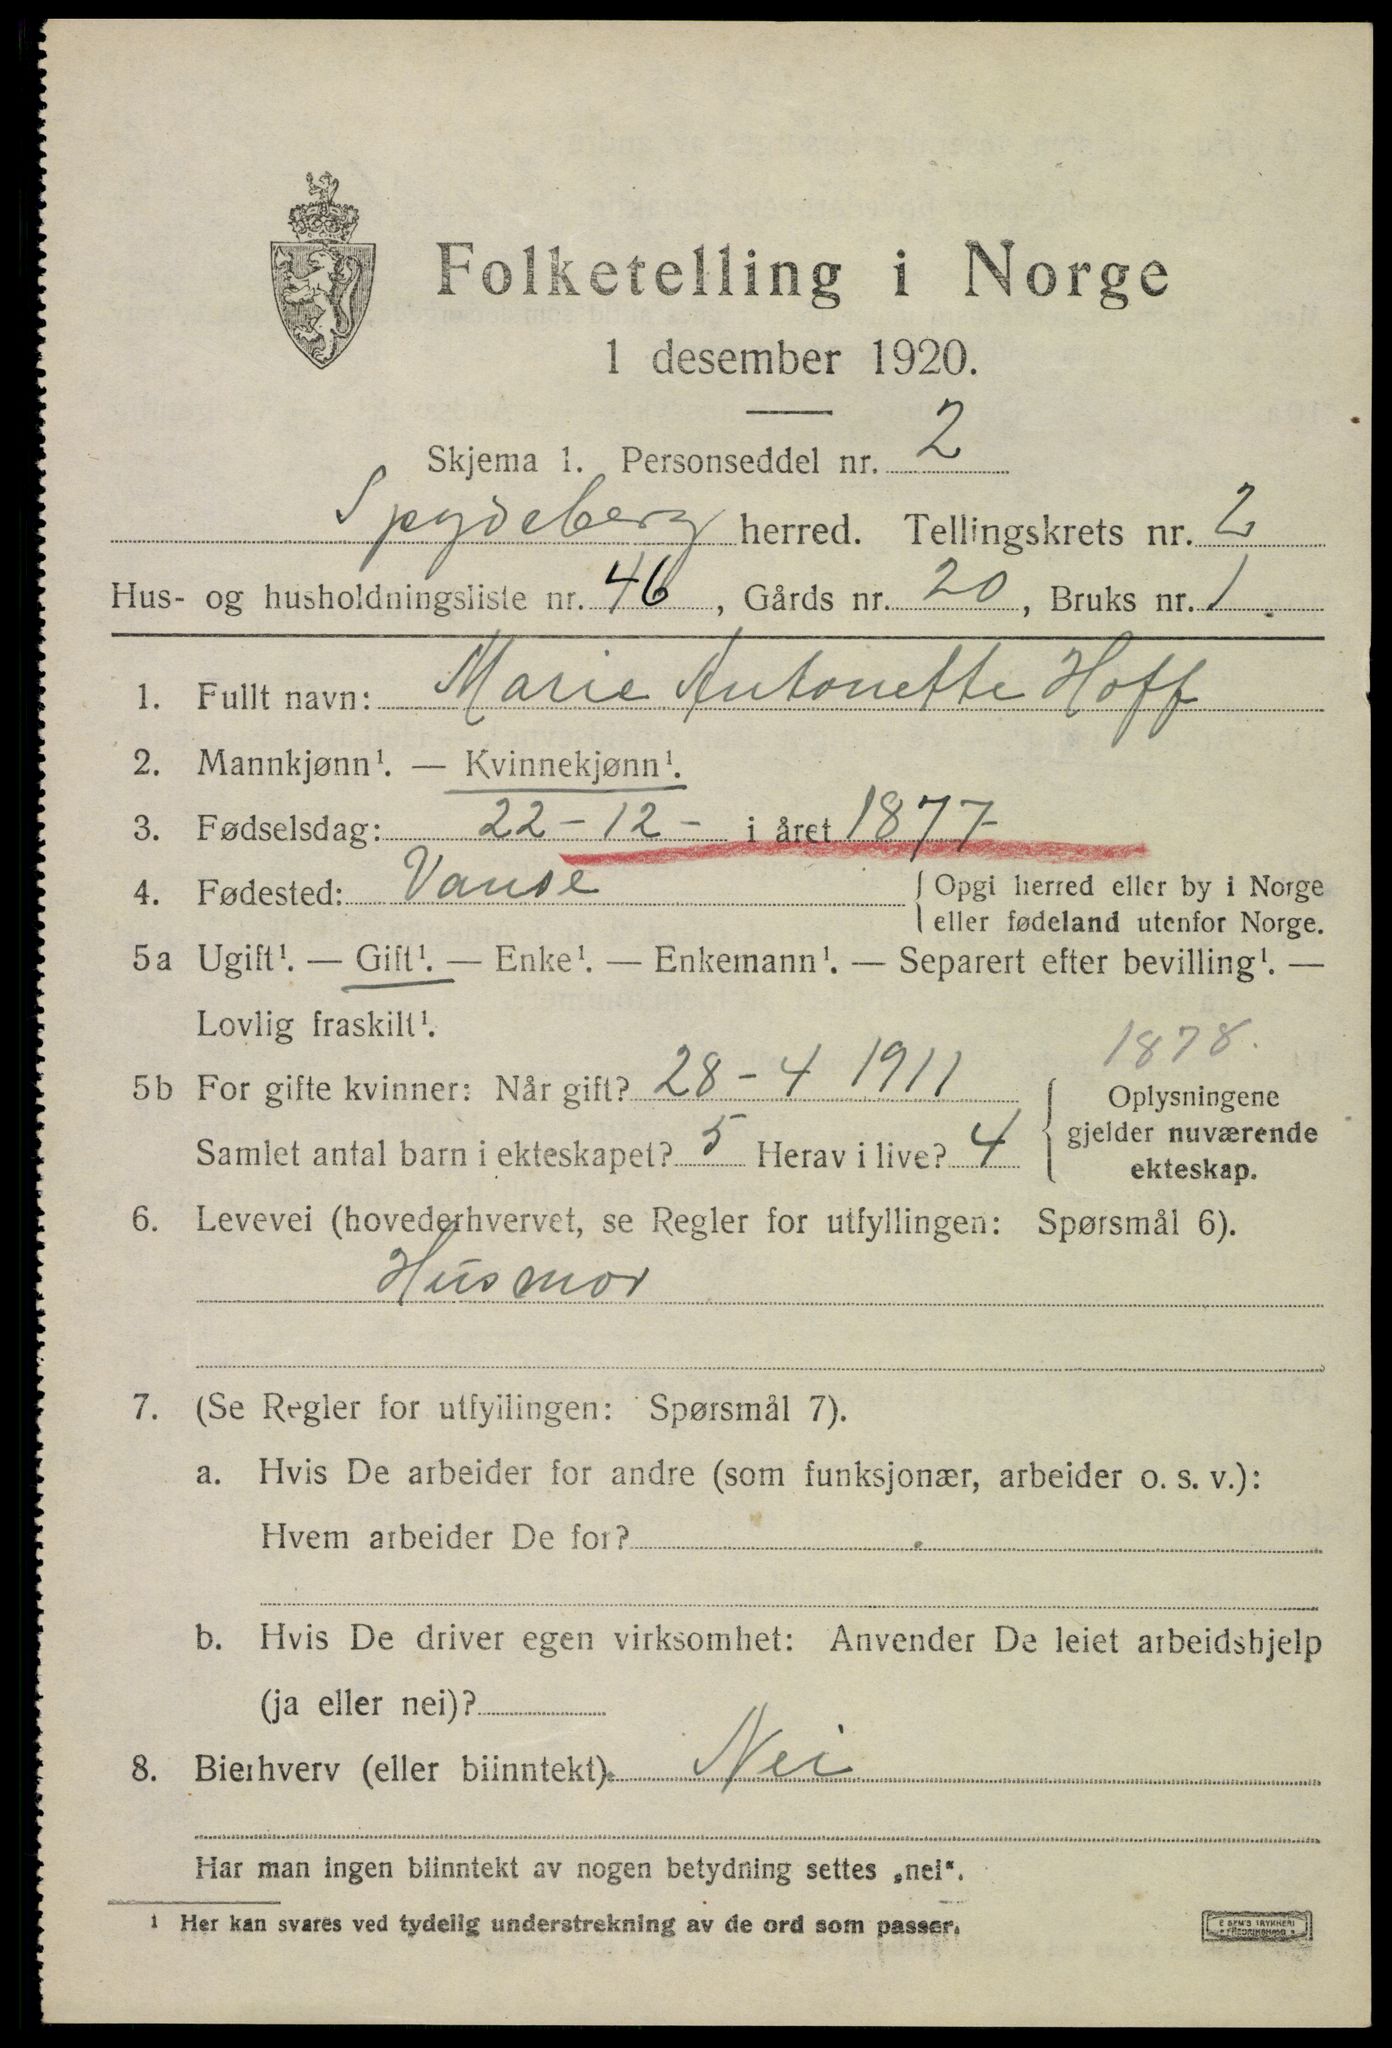 Folketelling i Norge
1 desember 1920.
Skjema 1. Personseddel nr. 2
Spydeberg herred. Tellingskrets nr. 2
Hus- og husholdningsliste nr. 46, Gårds nr. 20, Bruks nr. 1.
1. Fullt navn: Marie Antonette Hoff
2. Mannkjønn¹. — Kvinnekjønn¹.
3. Fødselsdag: 22-12- i året 1877
4. Fødested: Vanse { Opgi herred eller by i Norge
eller fødeland utenfor Norge.
5a Ugift¹. — Gift¹. — Enke¹. — Enkemann¹. — Separert efter bevilling¹. —
Lovlig fraskilt¹.
1878.
5b For gifte kvinner: Når gift? 28-4 1911 { Oplysningene
gjelder nuværende
Samlet antal barn i ekteskapet? 5 Herav i live? 4
ekteskap.
6. Levevei (hovederhvervet, se Regler for utfyllingen: Spørsmål 6).
Husmor
7. (Se Regler for utfyilingen: Spørsmål 7).
a. Hvis De arbeider for andre (som funksjonær, arbeider o. s. v.):
Hvem arbeider De for?
b. Hvis De driver egen virksomhet: Anvender De leiet arbeidshjelp
(ja eller nei)?
8. Bierhverv (eller biinntekt). Nei
Har man ingen biinntekt av nogen betydning settes „nei“.
1 Her kan svares ved tydelig understrekning av de ord som passer.
E SEM'S TRYKKERI
FREDRIKSHALD